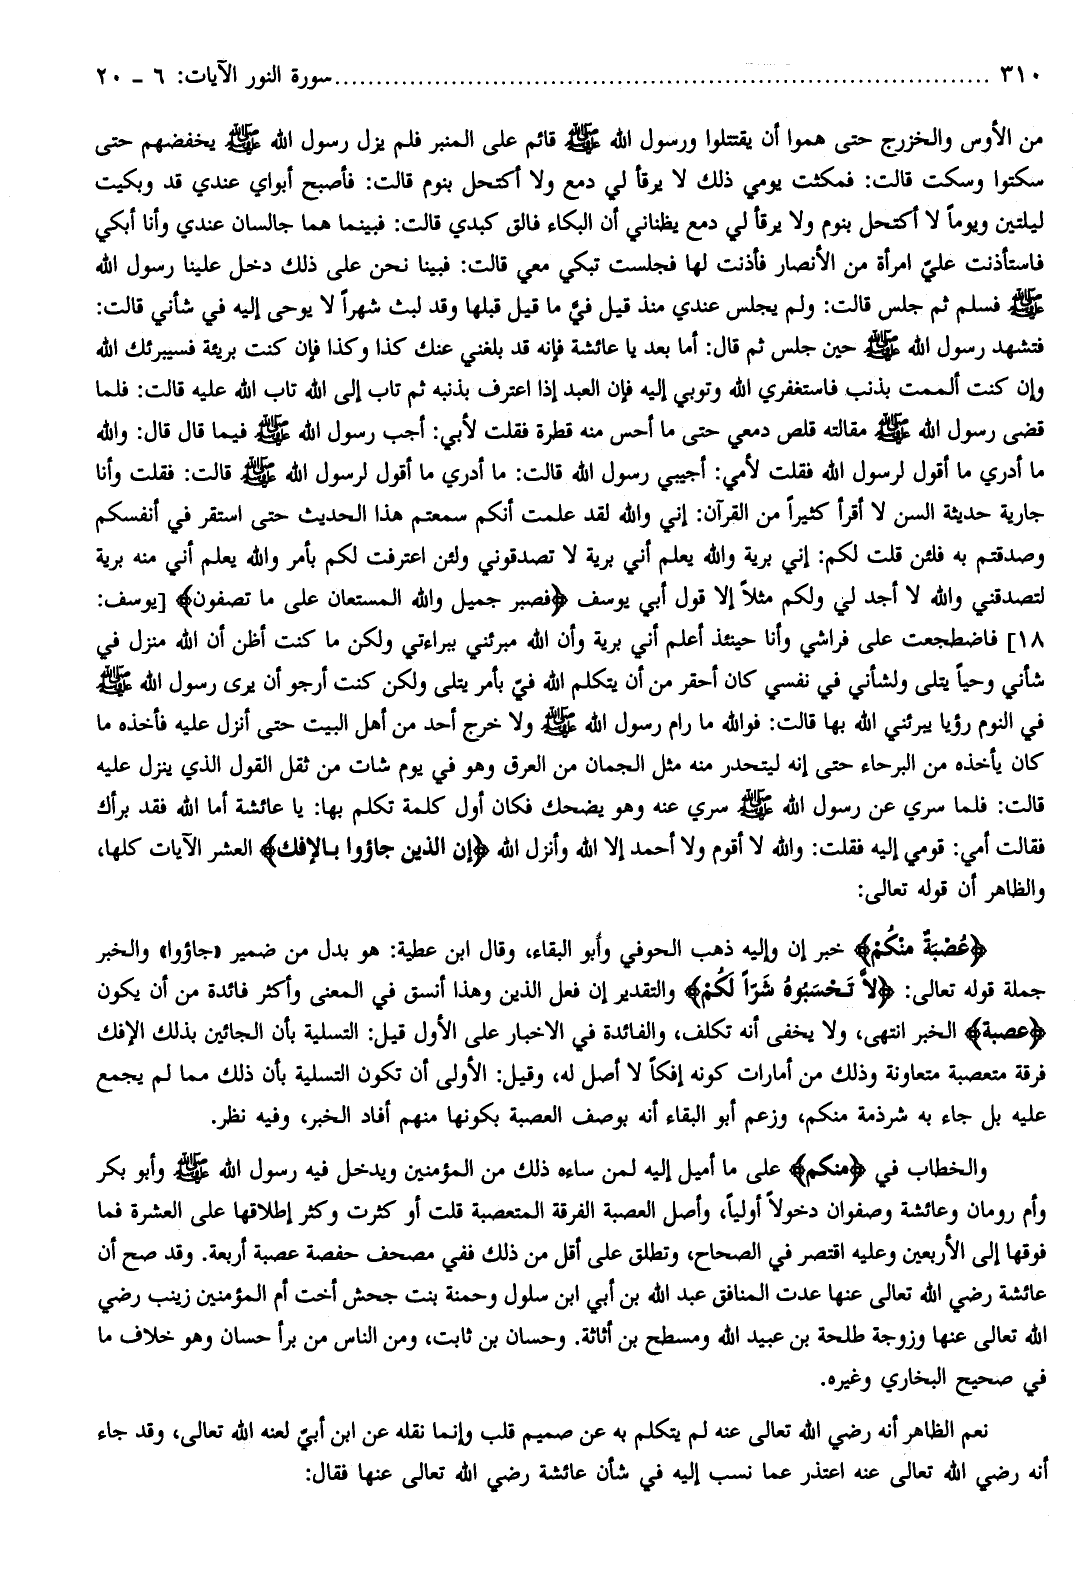 ٣١٠ ........................................................................................ سورة النور الآيات: ٦ ـ ٢٠
من الأوس والخزرج حتى هموا أن يقتتلوا ورسول الله ﷺ قائم على المنبر فلم يزل رسول الله ﷺ يخفضهم حتى
سكتوا وسكت قالت: فمكثت يومي ذلك لا يرقأ لي دمع ولا أكتحل بنوم قالت: فأصبح أبواي عندي قد وبكيت
ليلتين ويوماً لا أكتحل بنوم ولا يرقأ لي دمع يظناني أن البكاء فالق كبدي قالت: فبينما هما جالسان عندي وأنا أبكي
فاستأذنت عليّ امرأة من الأنصار فأذنت لها فجلست تبكي معي قالت: فبينا نحن على ذلك دخل علينا رسول الله
ﷺ فسلم ثم جلس قالت: ولم يجلس عندي منذ قيل فيَّ ما قيل قبلها وقد لبث شهراً لا يوحى إليه في شأني قالت:
فتشهد رسول الله ﷺ حين جلس ثم قال: أما بعد يا عائشة فإنه قد بلغني عنك كذا وكذا فإن كنت بريئة فسيبرئك الله
وإن كنت ألممت بذنب فاستغفري الله وتوبي إليه فإن العبد إذا اعترف بذنبه ثم تاب إلى الله تاب الله عليه قالت: فلما
قضى رسول الله ﷺ مقالته قلص دمعي حتى ما أحس منه قطرة فقلت لأبي: أجب رسول الله ﷺ فيما قال قال: والله
ما أدري ما أقول لرسول الله فقلت لأمي: أجيبي رسول الله قالت: ما أدري ما أقول لرسول الله ﷺ قالت: فقلت وأنا
جارية حديثة السن لا أقرأ كثيراً من القرآن: إني والله لقد علمت أنكم سمعتم هذا الحديث حتى استقر في أنفسكم
وصدقتم به فلئن قلت لكم: إني برية والله يعلم أني برية لا تصدقوني ولئن اعترفت لكم بأمر والله يعلم أني منه برية
لتصدقني والله لا أجد لي ولكم مثلاً إلا قول أبي يوسف ﴿فصبر جميل والله المستعان على ما تصفون﴾ [يوسف:
١٨] فاضطجعت على فراشي وأنا حينئذ أعلم أني برية وأن الله مبرئني ببراءتي ولكن ما كنت أظن أن الله منزل في
شأني وحياً يتلى ولشأني في نفسي كان أحقر من أن يتكلم الله فيّ بأمر يتلى ولكن كنت أرجو أن يرى رسول الله ﷺ
في النوم رؤيا يبرئني الله بها قالت: فوالله ما رام رسول الله ﷺ ولا خرج أحد من أهل البيت حتى أنزل عليه فأخذه ما
كان يأخذه من البرحاء حتى إنه ليتحدر منه مثل الجمان من العرق وهو في يوم شات من ثقل القول الذي ينزل عليه
قالت: فلما سري عن رسول الله ﷺ سري عنه وهو يضحك فكان أول كلمة تكلم بها: يا عائشة أما الله فقد برأك
فقالت أمي: قومي إليه فقلت: والله لا أقوم ولا أحمد إلا الله وأنزل الله ﴿إن الذين جاؤوا بالإفك﴾ العشر الآيات كلها،
والظاهر أن قوله تعالى:
﴿عُصْبَةٌ مِنْكُمْ﴾ خبر إن وإليه ذهب الحوفي وأبو البقاء، وقال ابن عطية: هو بدل من ضمير «جاؤوا» والخبر
جملة قوله تعالى: ﴿لاَ تَحْسَبُوهُ شَرّاً لَكُمْ﴾ والتقدير إن فعل الذين وهذا أنسق في المعنى وأكثر فائدة من أن يكون
﴿عصبة﴾ الخبر انتهى، ولا يخفى أنه تكلف، والفائدة في الاخبار على الأول قيل: التسلية بأن الجائين بذلك الإفك
فرقة متعصبة متعاونة وذلك من أمارات كونه إفكاً لا أصل له، وقيل: الأولى أن تكون التسلية بأن ذلك مما لم يجمع
عليه بل جاء به شرذمة منكم، وزعم أبو البقاء أنه بوصف العصبة بكونها منهم أفاد الخبر، وفيه نظر.
والخطاب في ﴿منكم﴾ على ما أميل إليه لمن ساءه ذلك من المؤمنين ويدخل فيه رسول الله ﷺ وأبو بكر
وأم رومان وعائشة وصفوان دخولاً أولياً، وأصل العصبة الفرقة المتعصبة قلت أو كثرت وكثر إطلاقها على العشرة فما
فوقها إلى الأربعين وعليه اقتصر في الصحاح، وتطلق على أقل من ذلك ففي مصحف حفصة عصبة أربعة. وقد صح أن
عائشة رضي الله تعالى عنها عدت المنافق عبد الله بن أبي ابن سلول وحمنة بنت جحش أخت أم المؤمنين زينب رضي
الله تعالى عنها وزوجة طلحة بن عبيد الله ومسطح بن أثاثة. وحسان بن ثابت، ومن الناس من برأ حسان وهو خلاف ما
في صحيح البخاري وغيره.
نعم الظاهر أنه رضي الله تعالى عنه لم يتكلم به عن صميم قلب وإنما نقله عن ابن أبيّ لعنه الله تعالى، وقد جاء
أنه رضي الله تعالى عنه اعتذر عما نسب إليه في شأن عائشة رضي الله تعالى عنها فقال: